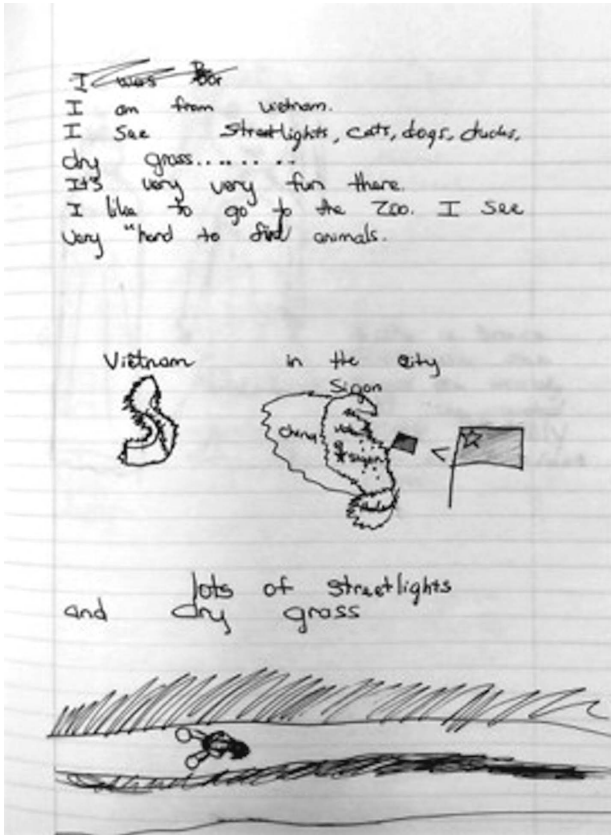 I was Bor
I am from vietnam.
I see streetlights, cats, dogs, ducks,
dry grass........
It's very very fun there.
I like to go to the Zoo. I see
very "hard to find animals.
Vietnam in the city
Sigon
china
sigon
lots of streetlights
and dry grass